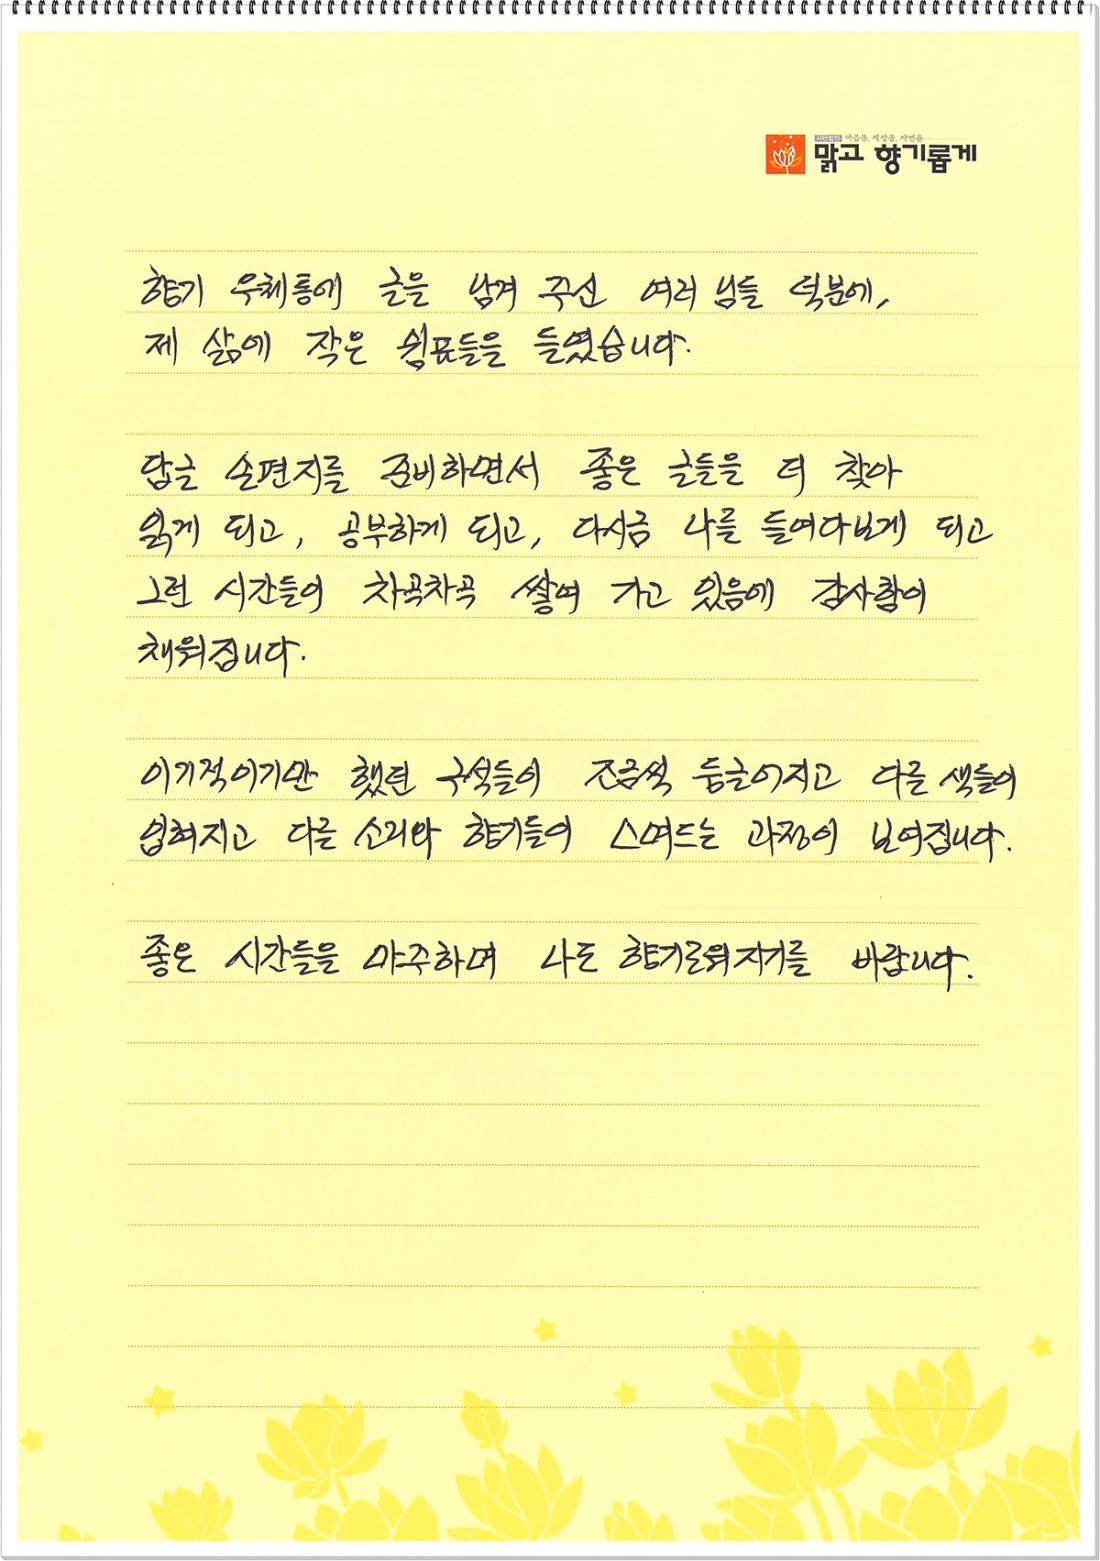 사단법인 마음을, 세상을, 자연을
맑고 향기롭게
향기 우체통에 글을 남겨 주신 여러 님들 덕분에,
제 삶에 작은 쉼표들을 들였습니다.
답글 손편지를 준비하면서 좋은 글들을 더 찾아
읽게 되고, 공부하게 되고, 다시금 나를 들여다보게 되고
그런 시간들이 차곡차곡 쌓여 가고 있음에 감사함이
채워집니다.
이기적이기만 했던 구석들이 조금씩 둥글어지고 다른 색들이
입혀지고 다른 소리와 향기들이 스며드는 과정이 보여집니다.
좋은 시간들을 마주하며 나도 향기로워지기를 바랍니다.